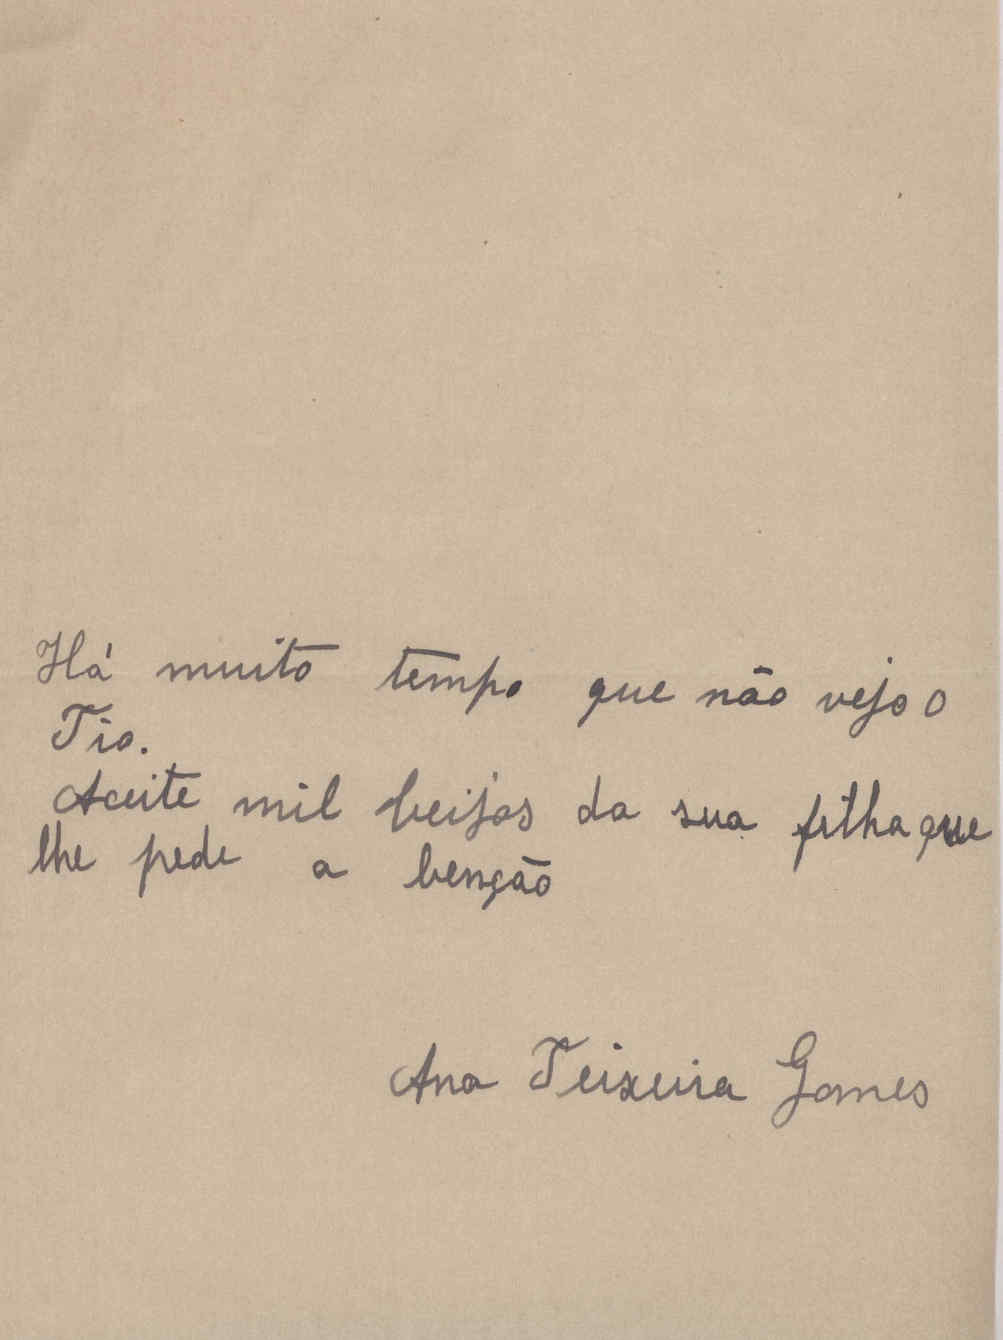 Há muito tempo que não vejo o
Tio.
Aceite mil beijos da sua filha que
lhe pede a benção
Ana Teixeira Gomes